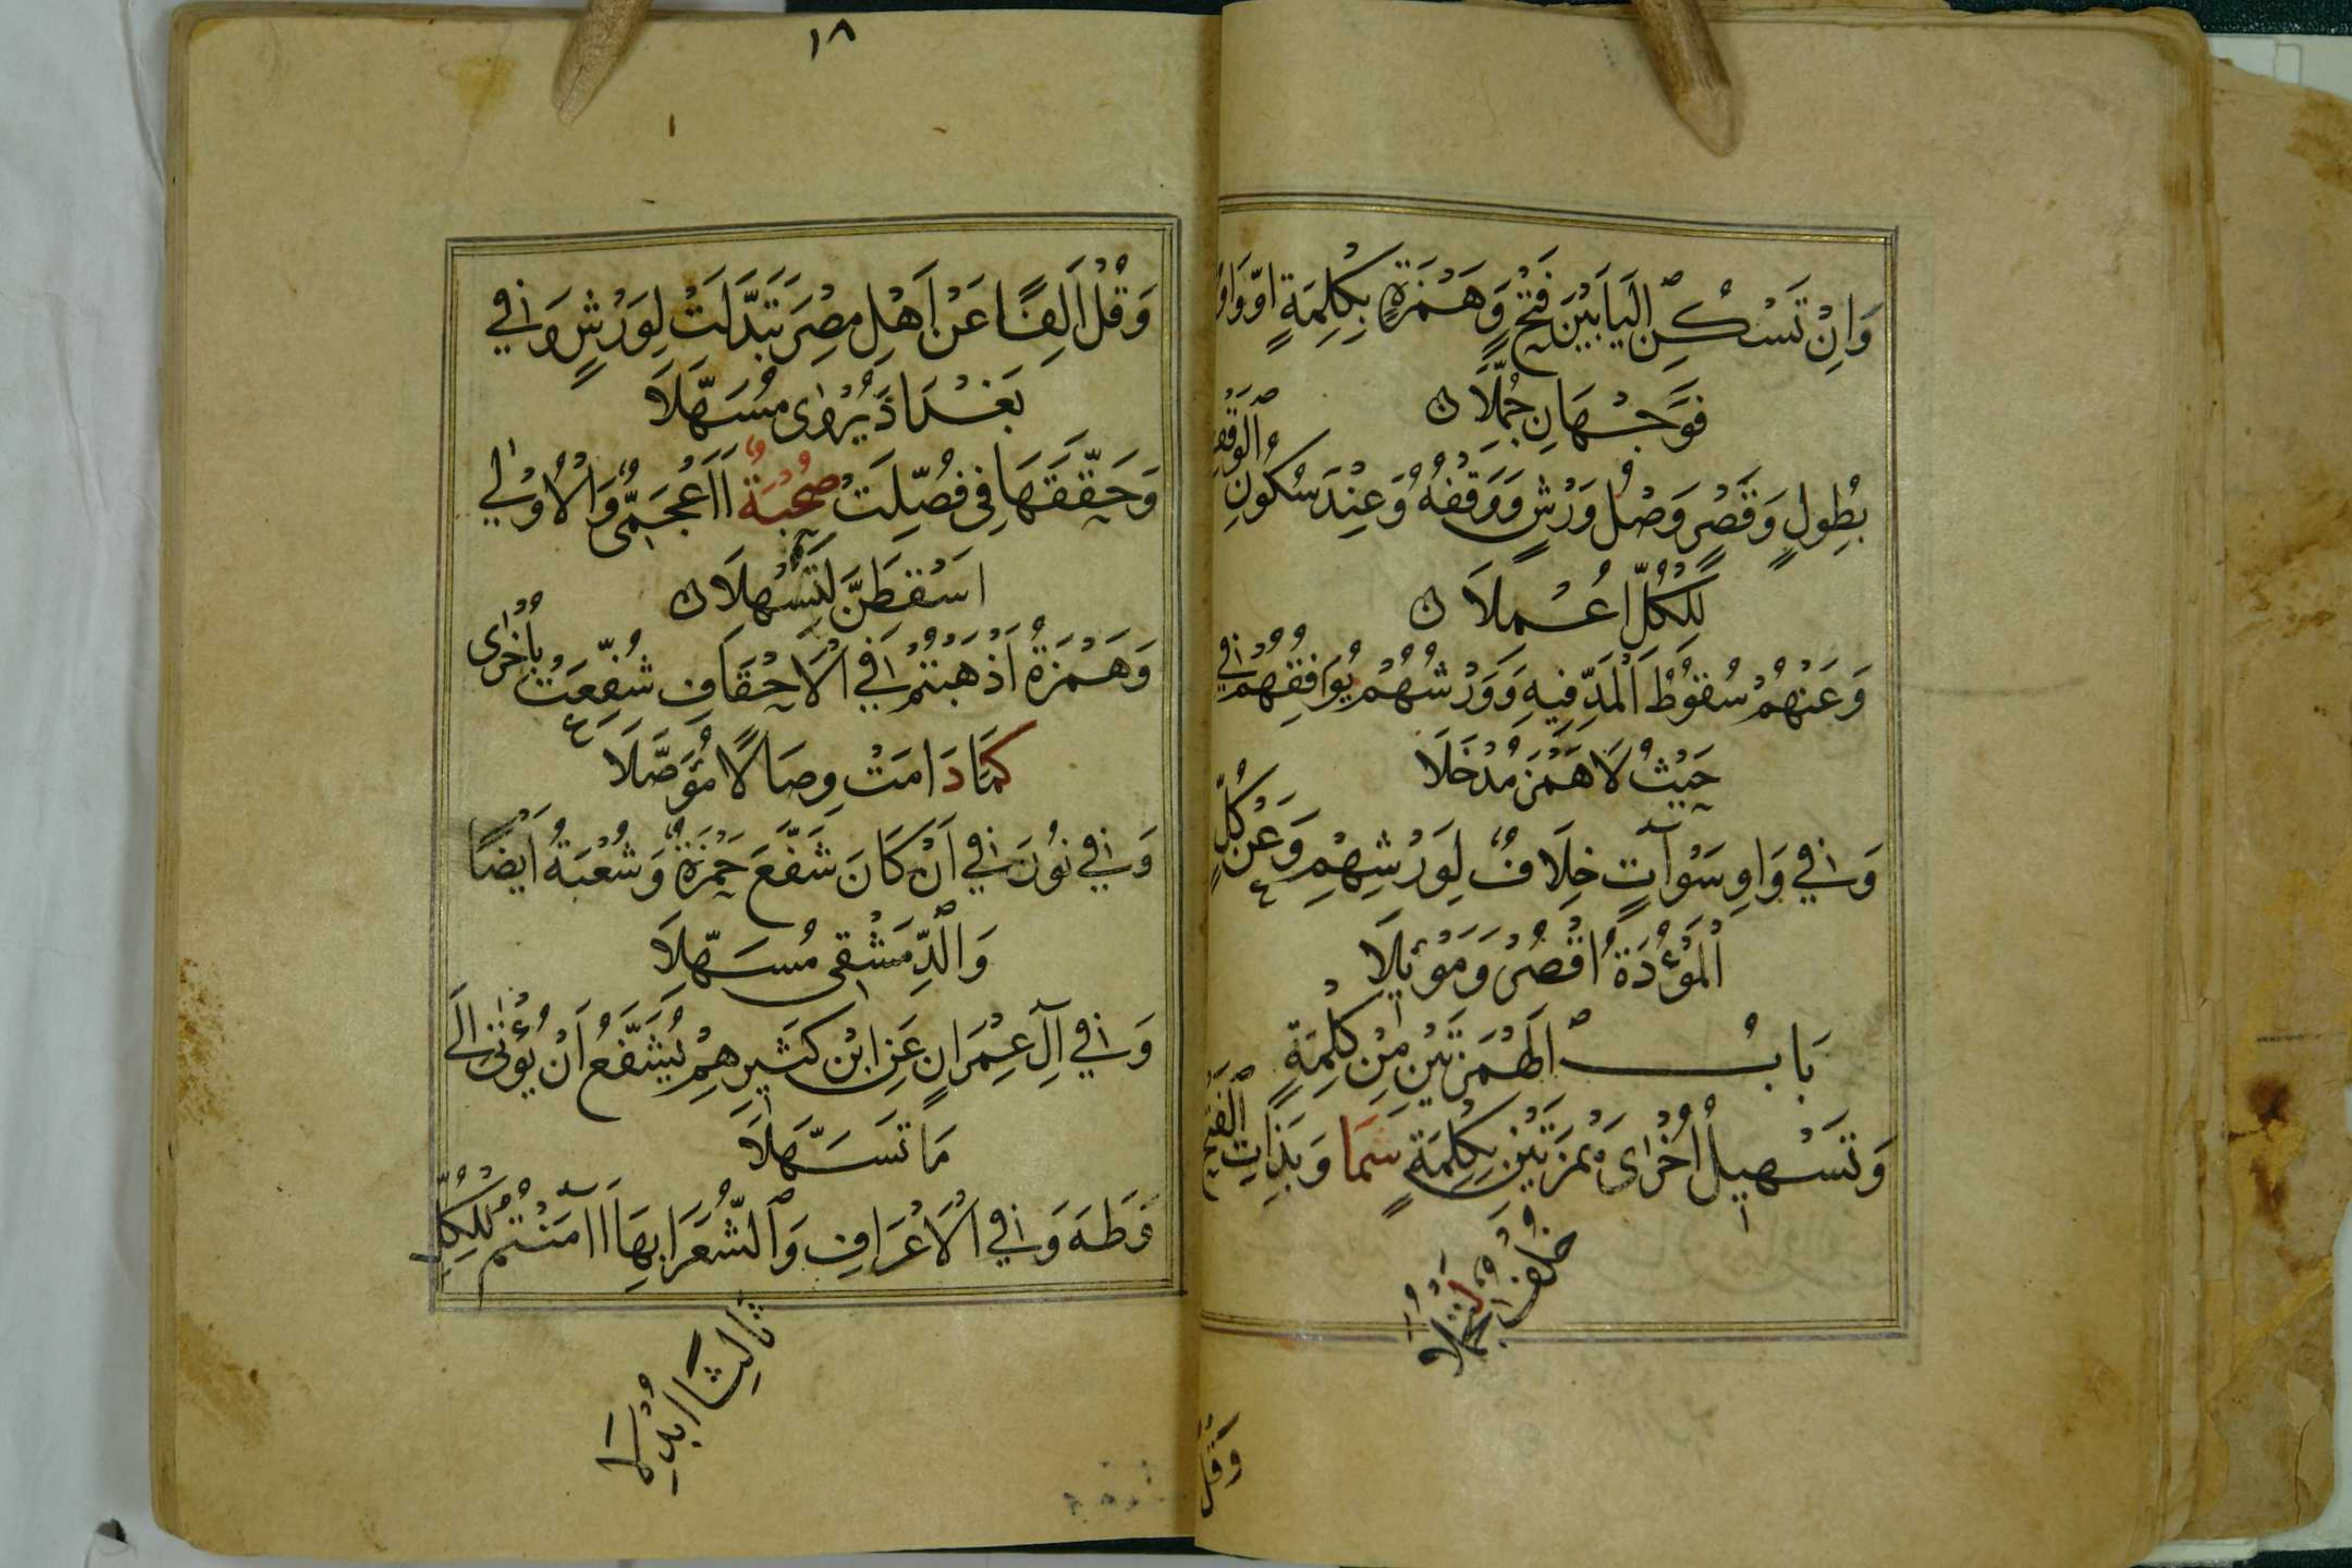 وَاِنْ تَسْكُنِ الْيَا بَيْنَ فَتْحٍ وَهَمْزَةٍ بِكِلْمَةٍ اَوْ وَاوٌ
فَوَجْهَانِ جُمِّلَا
بِطُولٍ وَقَصْرٍ وَصْلُ وَرْشٍ وَوَقْفُهُ وَعِنْدَ سُكُونِ الْوَقْفِ
لِلْكُلِّ اُعْمِلَا
وَعَنْهُمْ سُقُوطُ الْمَدِّ فِيهِ وَوَرْشُهُمْ يُوَافِقُهُمْ فِي
حَيْثُ لَا هَمْزَ مُدْخَلَا
وَفِي وَاوِ سَوْآتٍ خِلَافٌ لِوَرْشِهِمْ وَعَنْ كُلٍّ
الْمَوْءُدَةُ اقْصُرْ وَمَوْئِلَا
بَابُ الْهَمْزَتَيْنِ مِنْ كِلْمَةٍ
وَتَسْهِيلُ اُخْرٰى هَمْزَتَيْنِ بِكِلْمَةٍ سَمَا وَبِذَاتِ الْفَتْحِ
خُلْفٌ لِتَجْمُلَا
وَقُلْ
١٨
وَقُلْ اَلِفًا عَنْ اَهْلِ مِصْرَ تَبَدَّلَتْ لِوَرْشٍ وَفِي
بَغْدَادَ يُرْوٰى مُسَهَّلَا
وَحَقَّقَهَا فِي فُصِّلَتْ صُحْبَةٌ اَاَعْجَمِيٌّ وَالْاُوْلٰى
اَسْقِطَنَّ لِتُسْهِلَا
وَهَمْزَةُ اَذْهَبْتُمْ فِي الْاَحْقَافِ شُفِّعَتْ بِاُخْرٰى
كَمَا دَامَتْ وِصَالًا مُوَصَّلَا
وَفِي نُونَ فِي اَنْ كَانَ شَفَّعَ حَمْزَةٌ وَشُعْبَةُ اَيْضًا
وَالدِّمَشْقِي مُسَهِّلَا
وَفِي آلِ عِمْرَانٍ عَنِ ابْنِ كَثِيرِهِمْ يُشَفَّعُ اَنْ يُؤْتٰى اِلَى
مَا تَسَهَّلَا
وَطٰهَ وَفِي الْاَعْرَافِ وَالشُّعَرَا بِهَا اَآمَنْتُمُ لِلْكُلِّ
ثَالِثًا ابْدِلَا